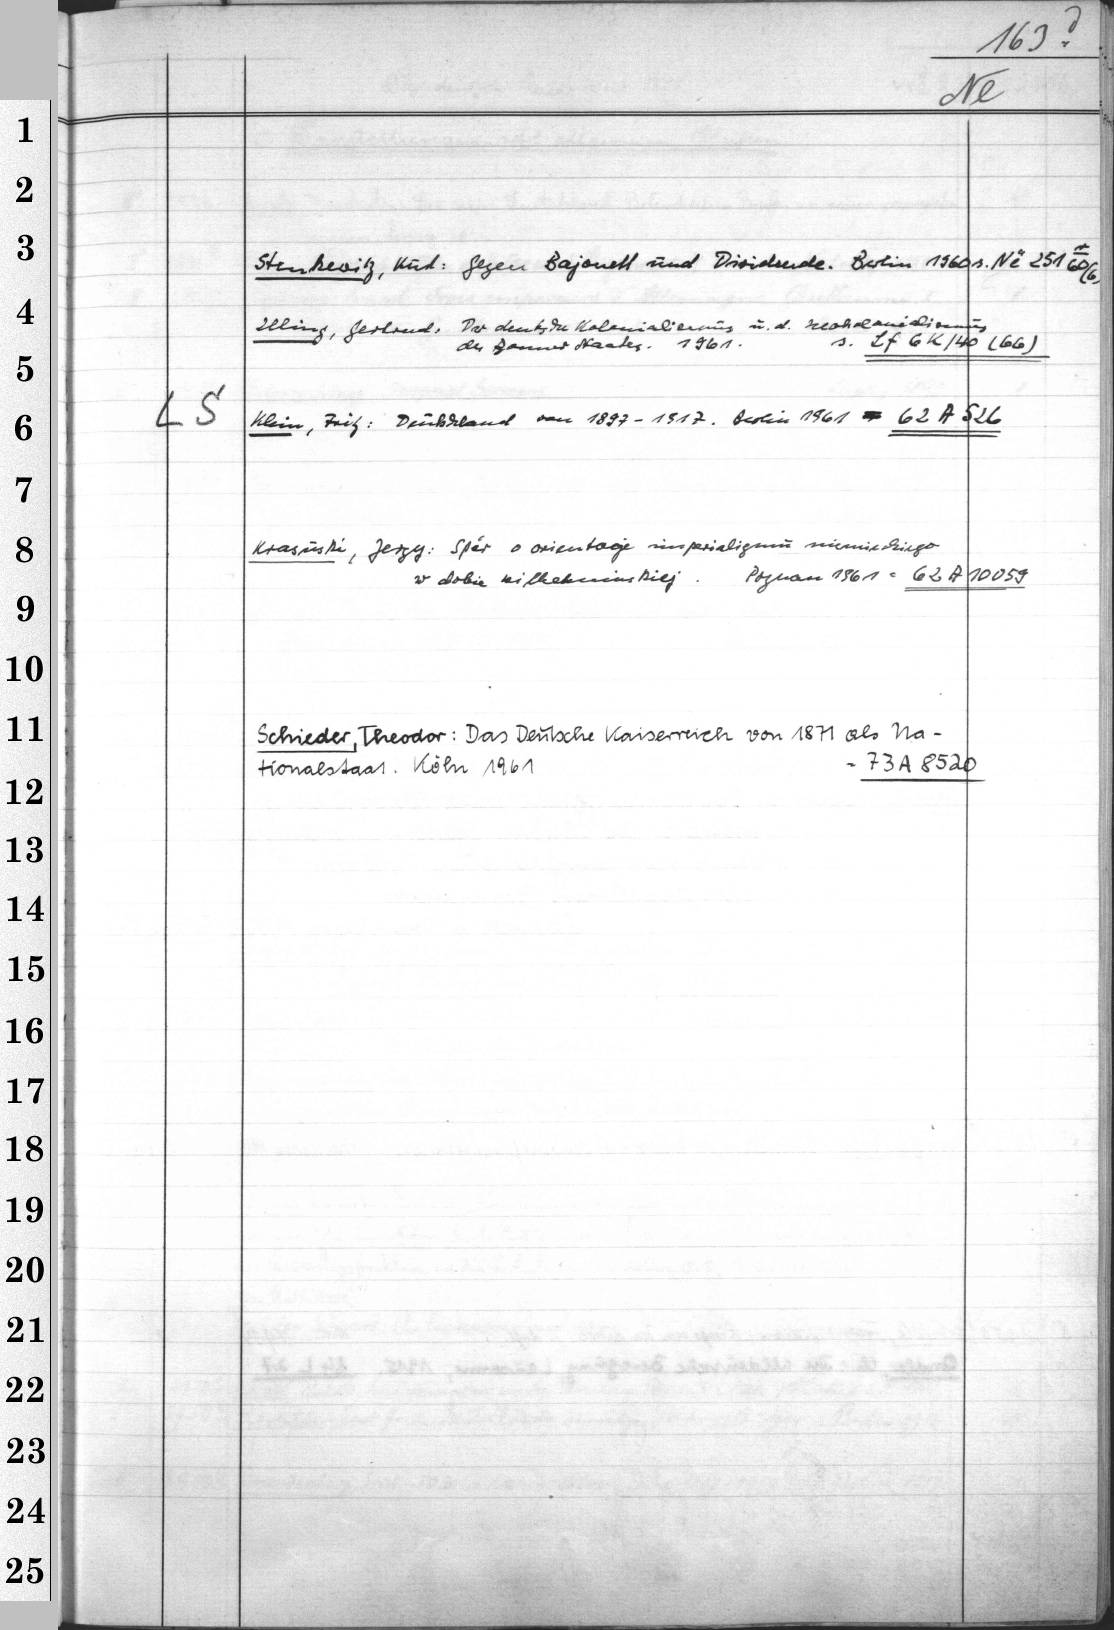 163 d
Ne
1
2
3
Stenkewitz, Kurt: Gegen Bajonett und Dividende. Berlin 1960 s. Në 251
4
Illing, Gertrud: Der deutsche Kolonialismus u. d. Neokolonialismus
des Bonner Staates. 1961. s. Lf 6K/40 (66)
5
LS Klein, Fritz: Deutschland von 1897-1917. Berlin 1961 = 62 A 526
6
7
8
Krasuski, Jerzy: Spór o orientację imperializmu niemieckiego
w dobie wilhelmińskiej. Poznan 1961 = 62 A 10059
9
10
11
Schieder, Theodor: Das Deutsche Kaiserreich von 1871 als Na-
tionalstaat. Köln 1961 = 73 A 8520
12
13
14
15
16
17
18
19
20
21
22
23
24
25